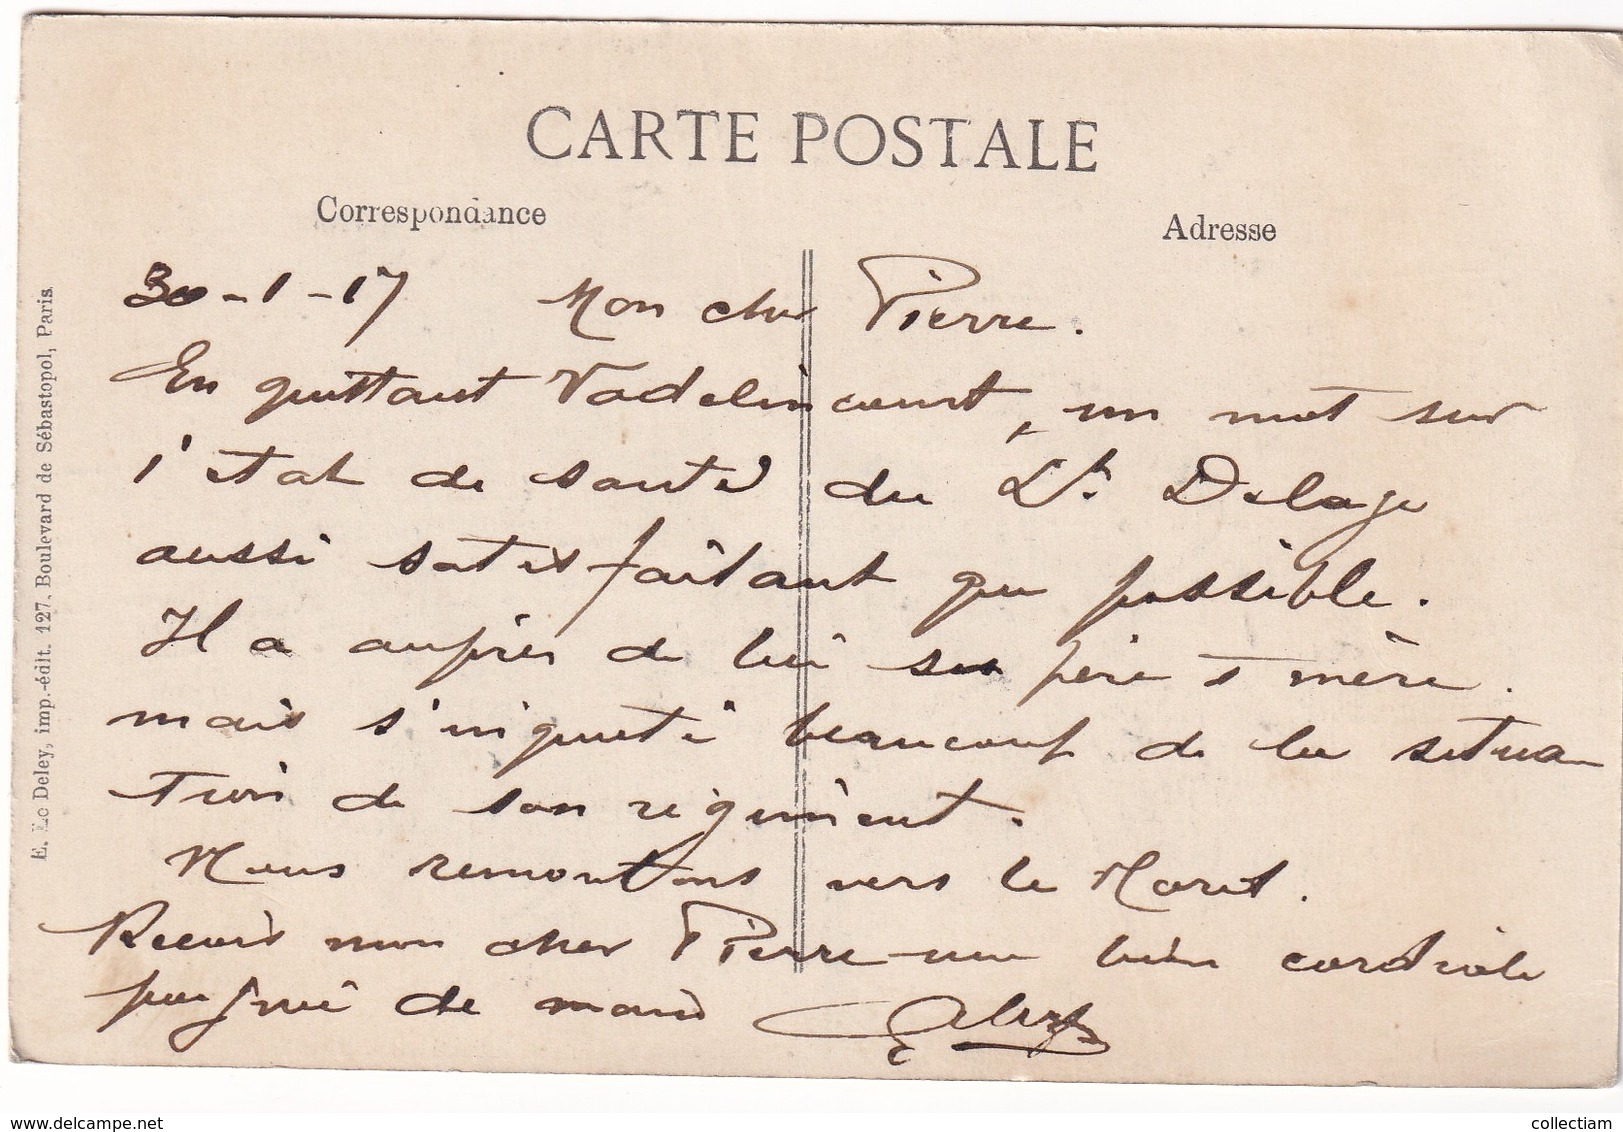 CARTE POSTALE
Correspondance
Adresse
30-1-17 Mon cher Pierre.
En quittant Vadelincourt, un mot sur
l'etat de santé du Lt. Delage
aussi satisfaisant que possible.
Il a auprès de lui ses père et mère.
mais s'inquiete beaucoup de la situa
tion de son régiment.
Nous remontons vers le Mort.
Reçois mon cher Pierre une bien cordiale
poignée de main
E. Le Deley, imp.-édit. 127, Boulevard de Sébastopol, Paris
www.delcampe.net
collectiam